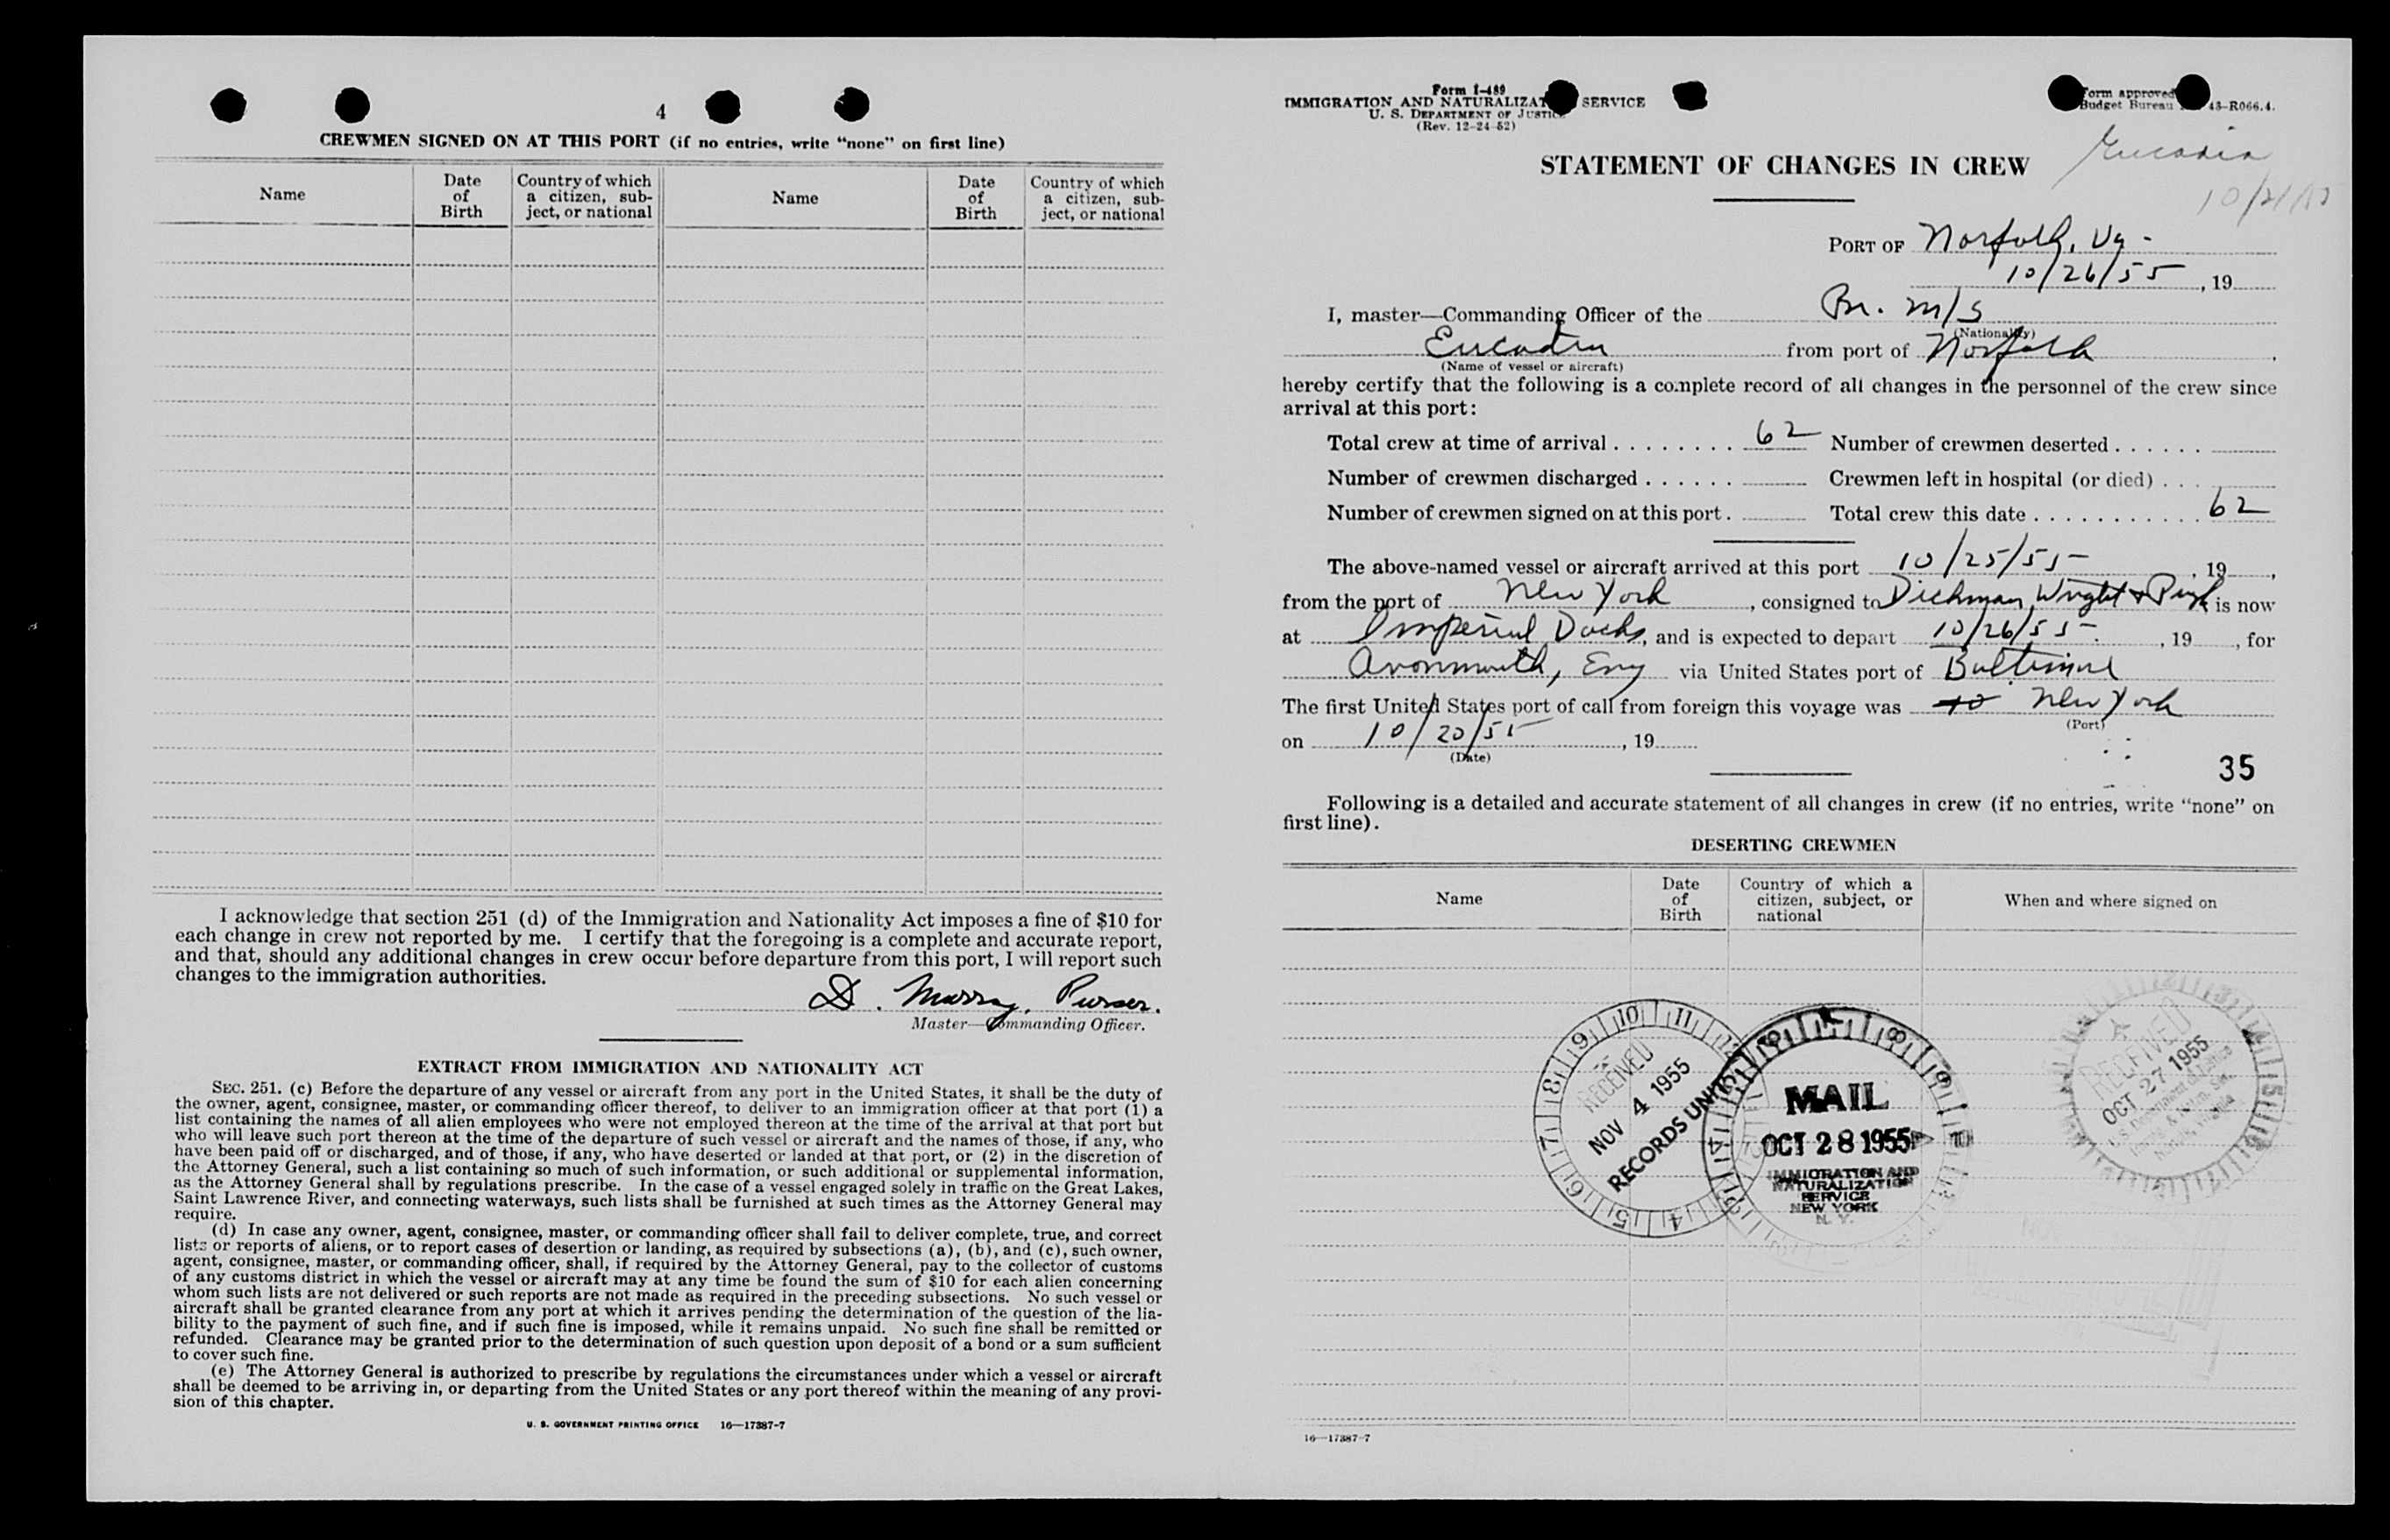 4
CREWMEN SIGNED ON AT THIS PORT (if no entries, write "none" on first line)
Name
Date of Birth
Country of which a citizen, subject, or national
Name
Date of Birth
Country of which a citizen, subject, or national
I acknowledge that section 251 (d) of the Immigration and Nationality Act imposes a fine of $10 for
each change in crew not reported by me. I certify that the foregoing is a complete and accurate report,
and that, should any additional changes in crew occur before departure from this port, I will report such
changes to the immigration authorities.
D. Murray, Purser.
Master—Commanding Officer.
EXTRACT FROM IMMIGRATION AND NATIONALITY ACT
SEC. 251. (c) Before the departure of any vessel or aircraft from any port in the United States, it shall be the duty of
the owner, agent, consignee, master, or commanding officer thereof, to deliver to an immigration officer at that port (1) a
list containing the names of all alien employees who were not employed thereon at the time of the arrival at that port but
who will leave such port thereon at the time of the departure of such vessel or aircraft and the names of those, if any, who
have been paid off or discharged, and of those, if any, who have deserted or landed at that port, or (2) in the discretion of
the Attorney General, such a list containing so much of such information, or such additional or supplemental information,
as the Attorney General shall by regulations prescribe. In the case of a vessel engaged solely in traffic on the Great Lakes,
Saint Lawrence River, and connecting waterways, such lists shall be furnished at such times as the Attorney General may
require.
(d) In case any owner, agent, consignee, master, or commanding officer shall fail to deliver complete, true, and correct
lists or reports of aliens, or to report cases of desertion or landing, as required by subsections (a), (b), and (c), such owner,
agent, consignee, master, or commanding officer, shall, if required by the Attorney General, pay to the collector of customs
of any customs district in which the vessel or aircraft may at any time be found the sum of $10 for each alien concerning
whom such lists are not delivered or such reports are not made as required in the preceding subsections. No such vessel or
aircraft shall be granted clearance from any port at which it arrives pending the determination of the question of the lia-
bility to the payment of such fine, and if such fine is imposed, while it remains unpaid. No such fine shall be remitted or
refunded. Clearance may be granted prior to the determination of such question upon deposit of a bond or a sum sufficient
to cover such fine.
(e) The Attorney General is authorized to prescribe by regulations the circumstances under which a vessel or aircraft
shall be deemed to be arriving in, or departing from the United States or any port thereof within the meaning of any provi-
sion of this chapter.
U. S. GOVERNMENT PRINTING OFFICE 16—17387-7
Form I-489
IMMIGRATION AND NATURALIZAT SERVICE
U. S. DEPARTMENT OF JUSTICE
(Rev. 12-24-52)
Form approved
Budget Bureau 43-R066.4.
Eucadia
STATEMENT OF CHANGES IN CREW
PORT OF Norfolk, Va -
10/26/55, 19
I, master—Commanding Officer of the Br. M/S
(Nationality)
Eucadia from port of Norfolk
(Name of vessel or aircraft)
hereby certify that the following is a complete record of all changes in the personnel of the crew since
arrival at this port:
Total crew at time of arrival 62 Number of crewmen deserted
Number of crewmen discharged Crewmen left in hospital (or died)
Number of crewmen signed on at this port. Total crew this date 62
The above-named vessel or aircraft arrived at this port 10/25/55, 19,
from the port of New York, consigned to Dichman, Wright & Pugh is now
at Imperial Docks, and is expected to depart 10/26/55, 19, for
Avonmouth, Eng via United States port of Baltimore
The first United States port of call from foreign this voyage was New York
(Port)
on 10/20/55, 19
(Date)
35
Following is a detailed and accurate statement of all changes in crew (if no entries, write "none" on
first line).
DESERTING CREWMEN
Name
Date of Birth
Country of which a citizen, subject, or national
When and where signed on
RECEIVED
NOV 4 1955
RECORDS UNIT
MAIL
OCT 28 1955
IMMIGRATION AND
NATURALIZATION
SERVICE
NEW YORK
N. Y.
RECEIVED
OCT 27 1955
16—17387-7